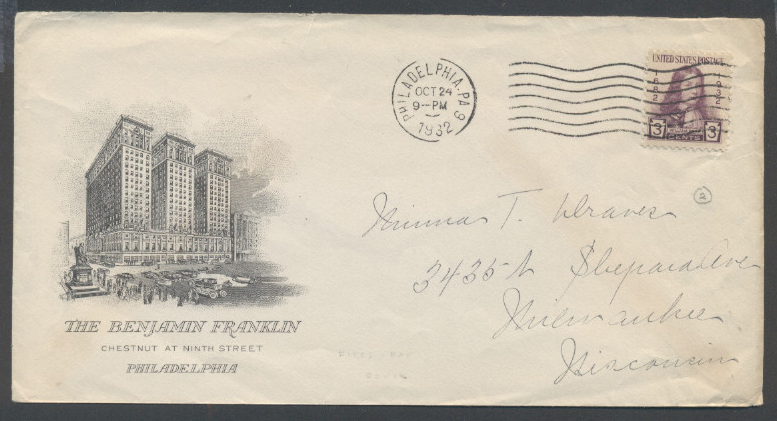 PHILADELPHIA, PA 9
OCT 24
9-PM
1932
UNITED STATES POSTAGE
1682 1932
3 3
CENTS
2
Minna T. Draves
3435 N Shepard Ave
Milwaukee
Wisconsin
THE BENJAMIN FRANKLIN
CHESTNUT AT NINTH STREET
PHILADELPHIA